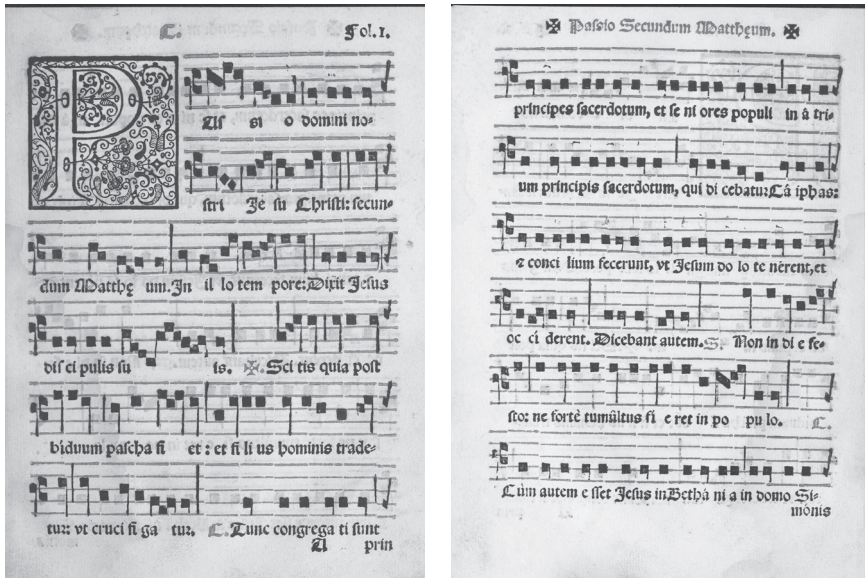 C. Fol. 1.
P
As si o domini no-
stri Je su Christi: secun-
dum Matthę um. In il lo tem pore: Dixit Jesus
dis ci pulis su is. ✠. Sci tis quia post
biduum pascha fi et : et fi li us hominis trade-
tur: vt cruci fi ga tur. C. Tunc congrega ti sunt
A prin
✠ Passio Secundum Matthęum. ✠
principes sacerdotum, et se ni ores populi in á tri-
um principis sacerdotum, qui di cebatur Cá iphas:
⁊ conci lium fecerunt, vt Jesum do lo te nérent, et
oc cí derent. Dicebant autem. S. Non in di e fe-
sto: ne fortè tumúltus fi e ret in po pu lo. C.
Cùm autem e sset Jesus in Bethá ni a in domo Si-
mónis